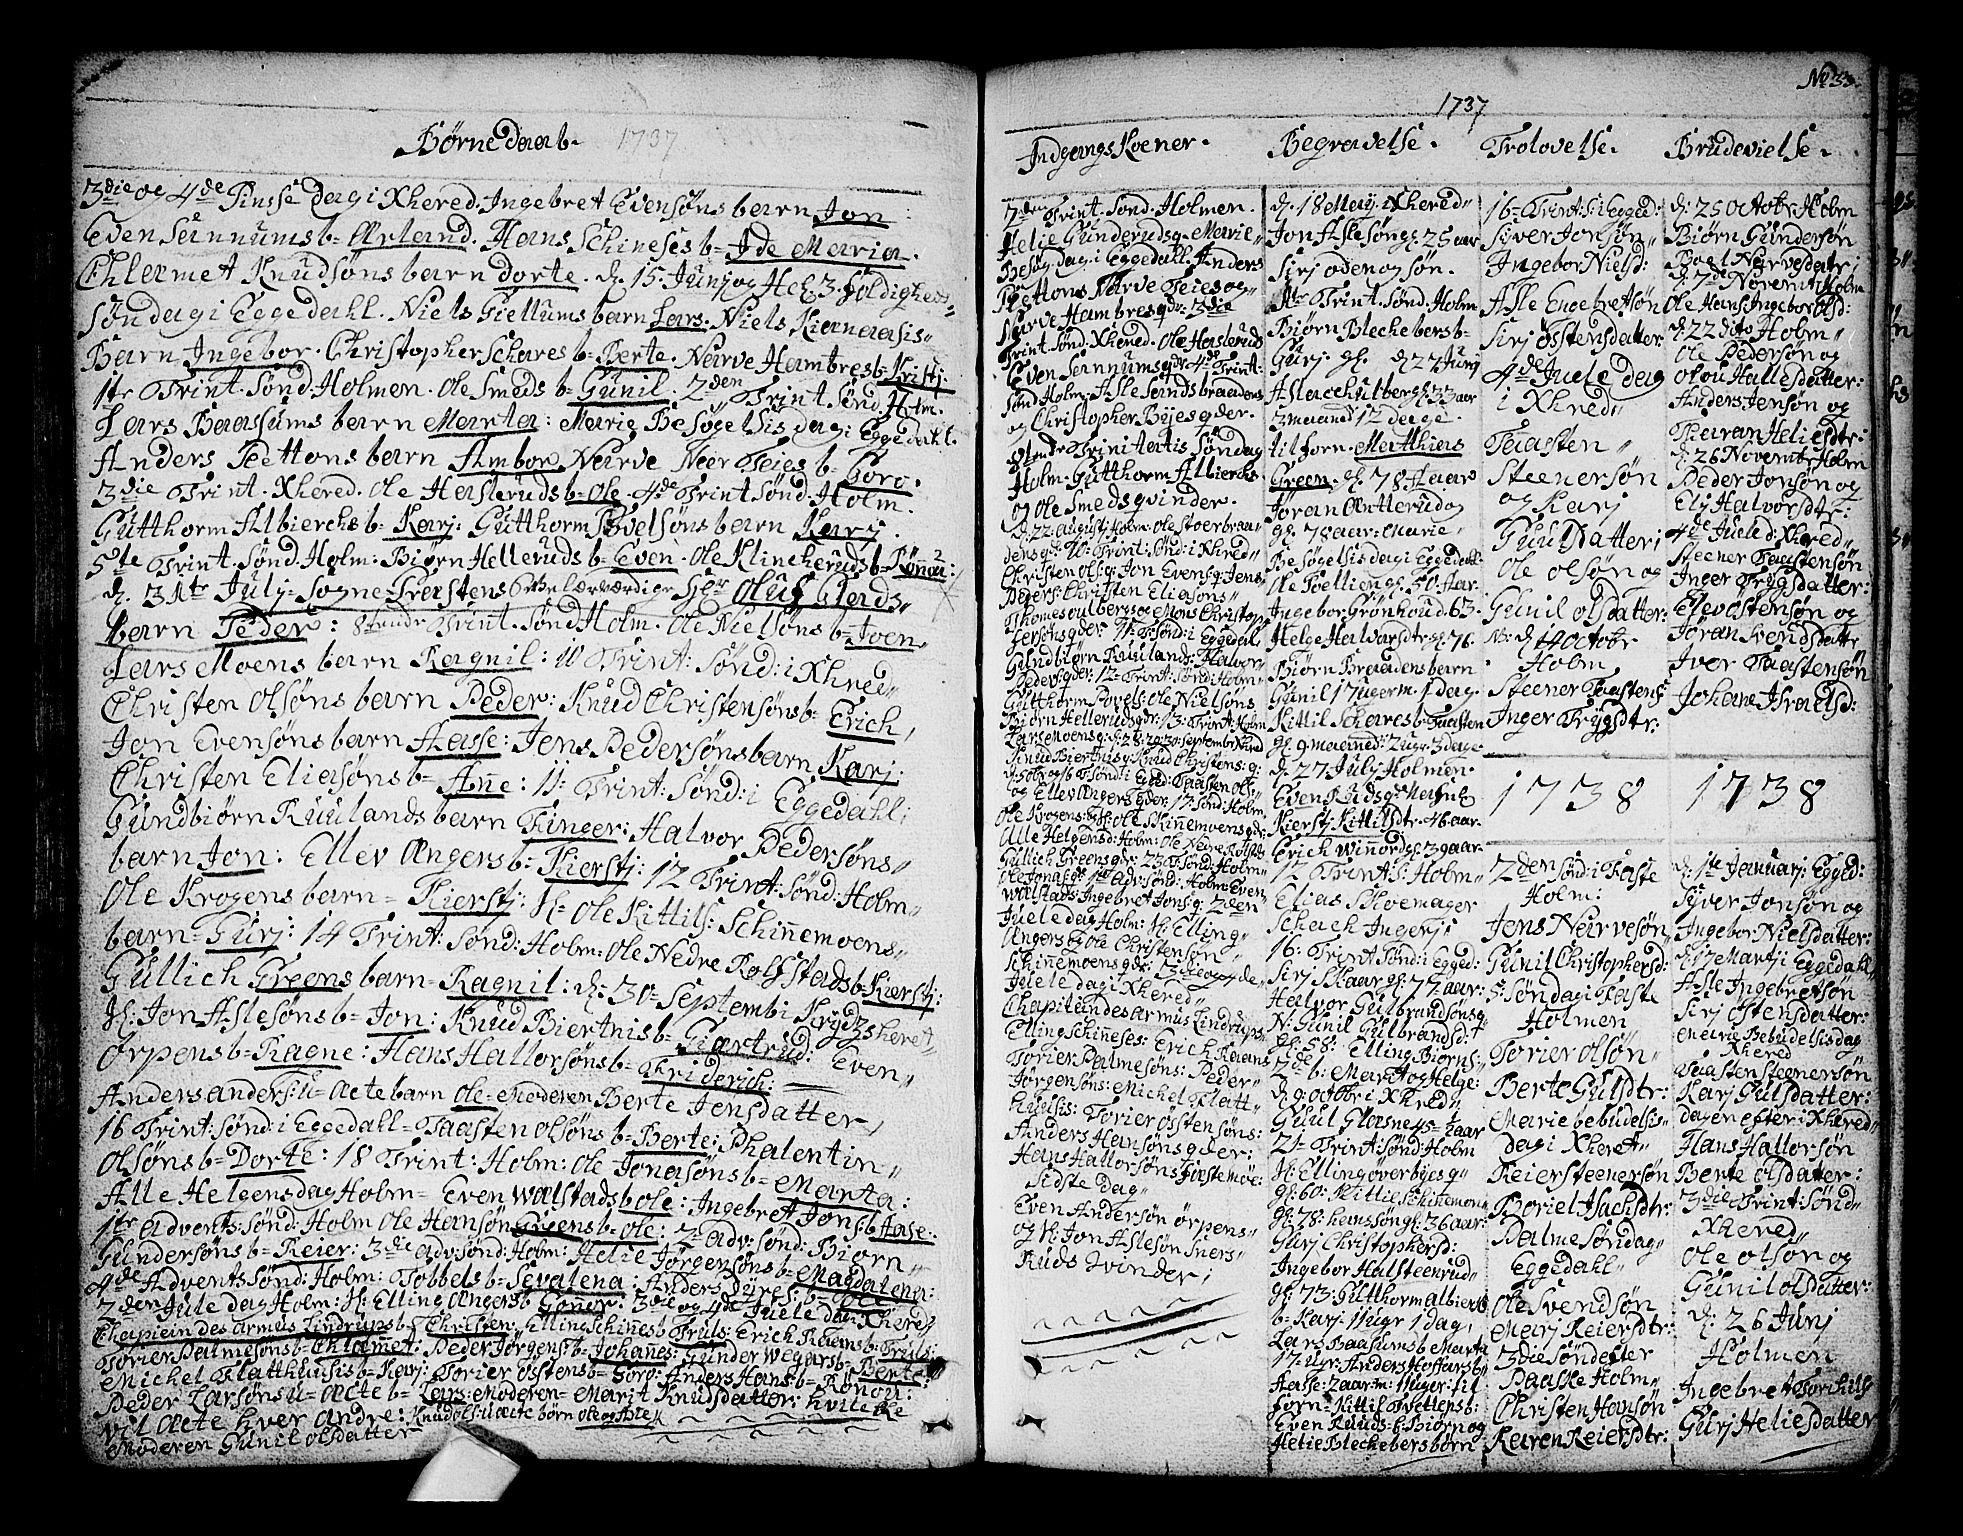 Børne daab. 1737
3die og 4de Pinsse dag i Khered. Ingebret Evensøns barn Jon:
Even Sannumsb= Erland. Hans Schinesis b= Ide Maria.
Chlamet Knudsøns barn dorte. d. 15 Junj og Hel 3 foldigheds
Søndag i Eggedahl. Niels Giellums barn Lars. Niels Kianaasis
Barn Ingebor. Christopher Schares b= Berte. Narve Hambres b= Kristj
1te Trint. Sønd. Holmen. Ole Smeds b= Gunil. 2den Trint Sønd. Holm.
Lars Baassums barn Marta: Marie Besøgelsis dag i Eggedahl.
Anders Tættons barn Ambor. Narve Neer Teies b= Goro.
3die Trint. Khered. Ole Hasleruds b= Ole. 4de Trint Sønd. Holm.
Gutthorm Albierchs b= Karj: Gutthorm Povelsøns barn Karj.
5te Trint. Sønd. Holm: Biørn Helleruds b= Even. Ole Klincheruds b= Rønou:
d. 31te July Sogne Præstens velærværdige Hr Oluf Glads
barn Peder: 8tende Trint. Sønd Holm. Ole Nielsøns b= Joen
Lars Moens barn Ragnil: 10 Trint: Sønd: i Khred
Christen Olsøns barn Peder: Knud Christensøns b= Erich,
Jon Evensøns barn Aasse: Jens Pedersøns barn Karj:
Christen Eliasøns b= Añe: 11 Trint: Sønd: i Eggedahl:
Gundbiørn Ruulands barn Finger: Halvor Pedersøns
barn Jon: Ellev Angers b= Kierstj: 12 Trint: Sønd: Holm
Ole Krogens barn= Kierstj: H: Ole Kittils: Schiñemoens
barn= Gurj: 14 Trint: Sønd: Holm: Ole Nedre Rolfstads b= Kierstj:
Gullich Greens barn= Ragnil: d: 30 Septembr Krydsheret
H: Jon Aslesøns b= Jon: Knud Biertnis b= Giærtrud: Even
Ørpens b= Ragne: Hans Hallorsøns b= Friderich:
Anders anders: u= Acte barn Ole= Moderen Berte Jensdatter,
16 Trint: Sønd: i Eggedahl= Taasten Olsøns b= Berte: Phalentin
Olsøns b= Dorte: 18 Trint: Holm: Ole Jonasøns b= Marta:
Alle Helgensdag Holm= Even Walstads b Ole: Ingebret Jons: b Aase:
1te Advents: Sønd: Holm Ole Hansøn Greens b= Ole: 2 Adv: Sønd: Biørn
Gundersøns b= Reier: 3die Adv: Sønd: Holm: Helie Jørgensøns b= Magdalena:
4de Advents Sønd: Holm: Tobbels b= Sevalena: Anders dyres: b=
2den Jule dag Holm: H: Elling Angers b Goner: 3die og 4de Juele dag Khered
Chapitein des armes Lindrups b= Christen: Elling Schiñes b Truls: Erich Raaens b= Truls:
Torier Palmesøns b= Chlamet: Peder Jørgens: b= Johañes: Gunder Wegars b= Berte:
Michel Flatthuusis b= Karj: Torier Østens b= Goro: Anders Hans: b= Rønou:
Peder Larsøns u= Ecte b= Lars: Moderen= Marjt Knudsdatter: hvilcke
vil Acte hver andre: Knud Ols: u Ecte børn Ole og Ane
Moderen Gunil Olsdatter
No 33.
1737
Indgangs Koener.
7de Trint. Sønd. Holmen.
Helie Gunderuds q. Marie
Besøg. dag i Eggedahl. Anders
Tættons Narve Teies og
Narve Hambres qdr: 3die
Trint. Sønd. Khered. Ole Hasleruds
Even Sannums qdr 4de Trint.
Sønd Holm. Asle Sandsbraadens
og Christopher Byes qder.
Trinitatis Søndag
Holm. Gutthorm Albierchs
og Ole Smeds qvinder.
d. 22 Augustj Holm. Ole Stoerbraa
dens q. 10 Trint: Sønd: i Khred
Christen Ols: q: Jon Evens: q: Jens
Pegers: Christen Eliasøns
Thomes Oulbergs og Mons Christop
Larsøns qder: 11 T: Sønd: i Eggedal
Gundbiørn Ruulands: Halvor
Peders: qder: 12 Trint: Sønd: Holm
Gutthorm Povels: Ole Nielsøns
Biørn Helleruds qdr: 13: Trint: Holm
Lars Moens q: d: 29 30 Septembr Khred
Knud Biertnis q: Knud Christens: q:
i Egd: Taasten Ols:
og Ellev Angers qder: 17: Sønd: Holm
Ole Krogens: q: H: Ole Skiñemoens qdr:
Alle Helgensd: Holm: Ole Nedre Rolfst:
Gullich Greens qdr: 23 T: Sønd: Holm
Ole Jonas: q: 1te Adv: Sønd: Holm: Even
Walstads: Ingebret Jons: q: 2den
Juele dag Holm: H: Elling
Angers og Ole Christensøn
Schiñemoens qdr: 3die og 4de
Juele dag i Khered
Chapiteindes armus Lindrups
Elling Schiñeses: Erich Raaens
Torier Palmesøns: Peder
Jørgensøns: Michel Flatt
huusis: Torier Østensøns:
Anders Hansøns qder:
Hans Hallorsøns Fastemøe:
Sidste dag
Even Andersøn Ørpens
og H: Jon Aslesøn Sners
Ruds Qvinder;
Begravelse.
d. 18 May. Khered
Jon Aslesøn gl. 25 aar
Sirj Oden og Søn.
1te Trint. Sønd. Holm
Biørn Blechebers b=
Gurj. gl. d 27 Junj
Aslac Hulberg gl. 33 aar
3 maand 12 dage
tilforn. Matthies
Green. gl. 78 Aar
Jøran Antterud og
gl. 78 aar. Marie
Besøgelsis dag i Eggedahl
Ole Toellien gl. 50 Aar.
Ingebor Grønhoud. 63.
Helge Halvarsdtr gl. 76.
Biørn Braadens barn
Gunil 17 uger m. 1 dag.
Kittil Schares b= Taasten
gl. 9 maaned: 2 ugr: 3 dage
d. 27 July Holmen.
Even Ruds q=
Kierstj Kittilsdtr. 46 aar
Erich Wiñord gl. 39 aar
12 Trint: S: Holm
Elias Skoemager
Schach Ingerj:
16: Trint: Sønd: i Egged:
Sirj Skaar gl: 77 aar:
Halvor Gulbrandsøns q
N: Gunil Gulbrandsd:
gl: 58: Elling Biørns:
2de b: Mart og Helge:
d: 9 Octobr i Khred
Guul Glasne 45 1/2 aar
21 Trint: Sønd: Holm
H: Elling Øverbyes q
gl: 60: Kittil Schiñemoen
gl: 78: hans Søn gl: 36 aar:
Gurj Christophersd:
Ingebor Halsteenrud
gl: 73: Gutthorm Albierts
b= Karj 11 ugr 1 dag,
Lars Baashums b= Marta
17: ugr: Anders Hoffars b=
Aase: 2 aar m: 11 uger: til
forn= Kittil Tvettens b:
Even Ruuds b= Biørn og
Helie Blechebers børn
Trolovelse.
16= Trint: S: i Egged:
Siver Jonsøn
Ingebor Nielsd:
Asle Engebretsøn
Sirj Østensdatter
4de Juele dag
i Khred
Taasten
Steenersøn
og Karj
Guulsdatter
Ole Olsøn og
Gunil Olsdatter:
N: d 14 Octobr
Holm
Steener Taastens:
Inger Trygsdtr:
1738
2den Sønd: i Faste
Holm:
Jens Narvesøn
Gunil Christophersd:
5: Søndag i Faste
Holmen
Torier Olsøn
Berte Gulsdtr:
Marie bebudelsis
dag i Khret
Reier Steenersøn
Boriel Isachsdtr:
Palme Søndag
Eggedahl
Ole Svendsøn
Marj Reiersdtr:
3die Sønd efter
Paaske Holm
Christen Hansøn
Karen Reiersdtr:
Brudevielse.
d: 25 Octobr Holm
Biørn Gundersøn
Boel Narvesdatr:
d: 7de Novembr Holm
Ole Hans: Ingebor Olsd:
d: 22 dito Holm
Ole Pedersøn og
Olou Hallesdatter:
Anders Jensøn og
Karan Heliesdtr:
d: 26 Novembr Holm
Peder Jonsøn og
Ely Halvorsdtr:
4de Juele d: Khred
Steener Taastensøn
Inger Trygsdatter:
Elev Østensøn og
Jøran Svendsdatter
Iver Taastensøn
Johane Israelsd:
1738
d: 1te Januarj: Egged:
Syver Jonsøn og
Ingebor Nielsdatter:
d: 17 Martj i Eggedahl
Asle Ingebretsøn
Sirj Østensdatter:
Marie Bebudelsis dag
Khered
Taasten Steenersøn
Karj Gulsdatter:
dagen efter i Khered
Hans Hallorsøn
Berte Olsdatter:
3die Trint: Sønd
Khered
Ole Olsøn og
Gunil Olsdatter:
d: 26 Junj
Holmen
Ingebret Torkils
Gurj Heliesdatter